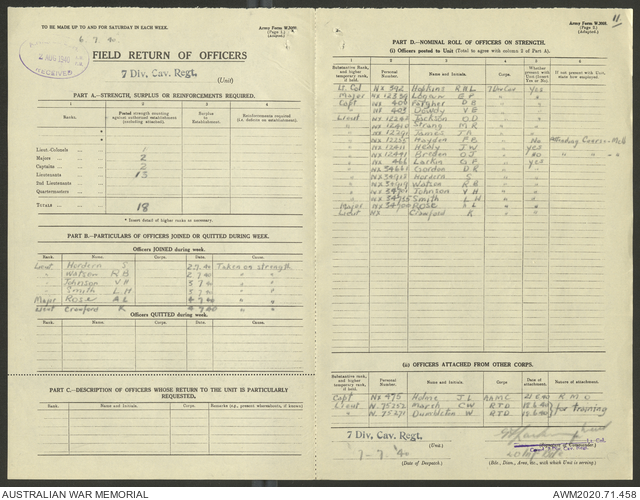 TO BE MADE UP TO AND FOR SATURDAY IN EACH WEEK.
Army Form W.3008.
(Page 1.)
(Adapted.)
6. 7. 40.
RECEIVED
FIELD RETURN OF OFFICERS
7 Div. Cav. Regt.
(Unit)
PART A.—STRENGTH, SURPLUS OR REINFORCEMENTS REQUIRED.
1 2 3 4
Ranks.
Posted strength counting against authorized establishment (excluding attached).
Surplus to Establishment.
Reinforcements required (i.e. deficits on establishment).
Lieut.-Colonels 1
Majors 2
Captains 2
Lieutenants 13
2nd Lieutenants
Quartermasters
TOTALS 18
* Insert detail of higher ranks as necessary.
PART B.—PARTICULARS OF OFFICERS JOINED OR QUITTED DURING WEEK.
Officers JOINED during week.
Rank. Name. Corps. Date. Cause.
Lieut Hordern S 2 7 40 Taken on strength
" Watson R B 2 7 40 " "
" Johnson V H 5 7 40 " "
" Smith L H 5 7 40 " "
Major Rose A L 4 7 40 " "
Lieut Crawford R 4 7 40 " "
Officers QUITTED during week.
Rank. Name. Corps. Date. Cause.
PART C.—DESCRIPTION OF OFFICERS WHOSE RETURN TO THE UNIT IS PARTICULARLY REQUESTED.
Rank. Name and Initials. Corps. Remarks (e.g., present whereabouts, if known)
Army Form W.3008.
(Page 2.)
(Adapted.)
11
PART D.—NOMINAL ROLL OF OFFICERS ON STRENGTH.
(i) Officers posted to Unit (Total to agree with column 2 of Part A).
1 2 3 4 5 6
Substantive Rank, and higher temporary rank, if held.
Personal Number.
Name and Initials.
Corps.
Whether present with Unit (Insert Yes or No).
If not present with Unit, state how employed.
Lt. Col NX 392 Hopkins R N L 7 Div Cav Yes
Major NX 12334 Logan E P " "
Capt NX 404 Fargher D B " "
" NX 403 V G " "
Lieut NX 12242 Jackson O D " "
" Strang M R " "
" James J A " "
" NX 12355 Hayden F B " No Attending Course
" NX 12411 Healy J W " Yes
" NX 12441 Breden O J " No " "
" NX 466 Larkin O P " Yes
" Gordon D R " "
" Hordern S " "
" Watson R B " "
" Johnson V H " "
" Smith L H " "
Major Rose A L " "
Lieut NX Crawford R " "
(ii) OFFICERS ATTACHED FROM OTHER CORPS.
Substantive rank, and higher temporary rank, if held.
Personal Number.
Name and Initials.
Corps.
Date of attachment.
Nature of attachment.
Capt NX 475 Holme J L AAMC R M O
Lieut N. 75252 Marsh C W RTD 15.6.40 for training
" N. 75271 Dumbleton W RTD 15.6.40
7 Div. Cav. Regt. (Unit)
(Signature of Commander)
7-7-40
(Date of Despatch.)
(Bde., Divn., Area, etc., with which Unit is serving)
AUSTRALIAN WAR MEMORIAL
AWM2020.71.458